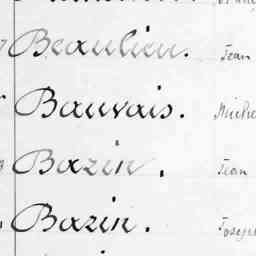 Beaulieu. Jean
Bauvais. Miche
Bazin. Jean
Bazin. Josep